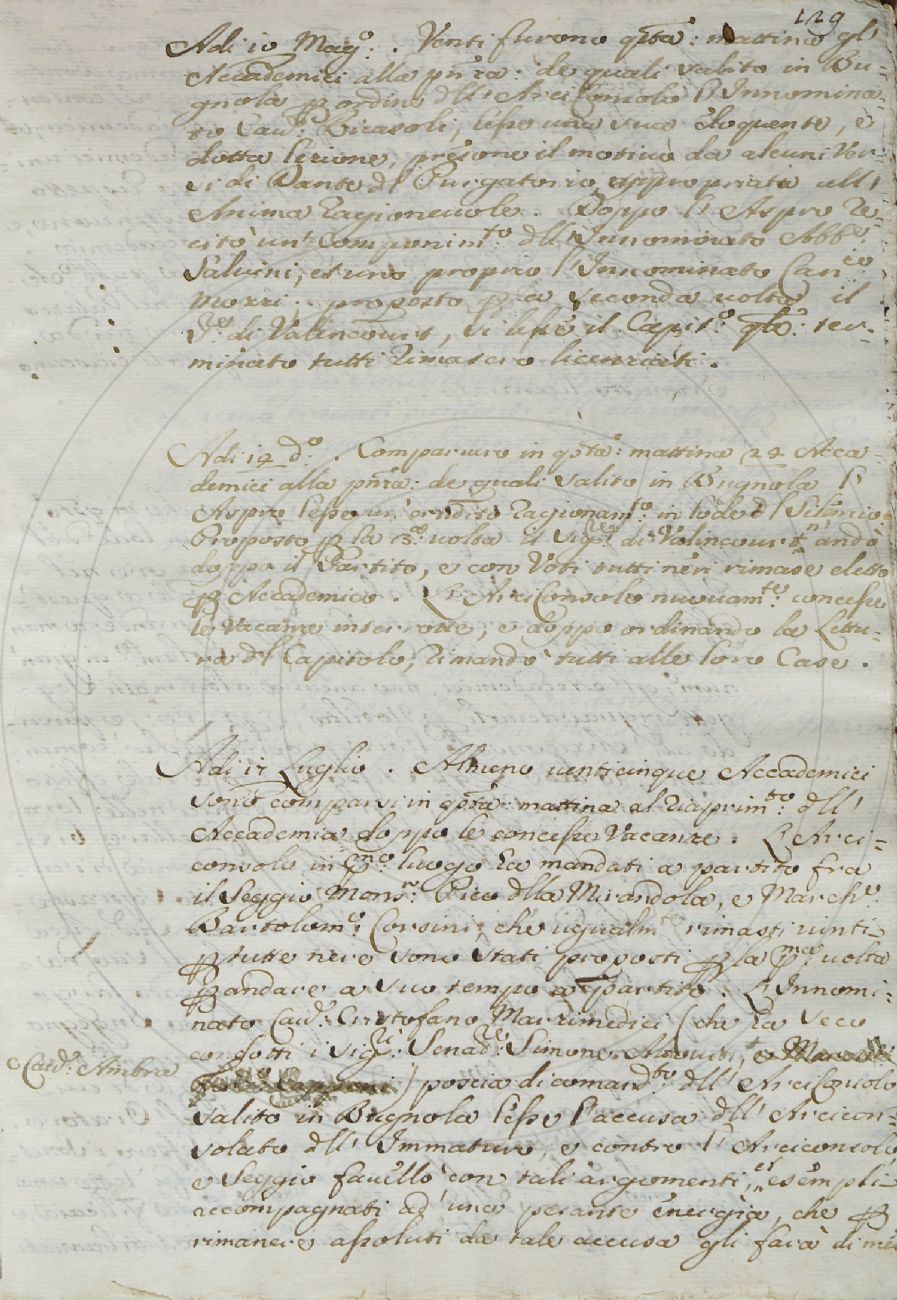 129
Adi 10 Mag.º. Venti furono q̃sta: mattina gl'
Accademici alla pñza: de quali salito in Bu-
gnola p ordine dll'Arciconsolo l'Innomina-
to Cau.r Ricasoli, lesse una sua eloquente, e
dotta lezione, presone il motivo da alcuni Ver-
si di Dante dl Purgatorio appropriata all'
Anima Ragionevole. Doppo l'Aspro re-
citò un componim.to dll'Innominato Abb.e
Salvini, et uno proprio l'Innominato Can.co
Mozzi. proposto p la seconda volta il
S.re di Valincourt, si lesse il Capit.º q̃le: ter-
minato tutti rimasero licenziati.
Adi 14 d.º. Comparvero in q̃sta: mattina 24 Acca-
demici alla pñza: de quali salito in Bugnola l'
Aspro lesse un'erudito ragionam.to in lode dl Silenzio
Proposto p la 3.ª volta il Sig.re di Valincourt n'andò
doppo il Partito, e con Voti tutti neri rimase eletto
p Accademico. L'Arciconsolo nuovam.te concesse
le Vacanze interrotte, e doppo ordinando la Lettu-
ra dl Capitolo, rimandò tutti alle loro Case.
Adi 17 Luglio. Almeno venticinque Accademici
sono comparsi in q̃sta: mattina al riaprim.to dll'
Accademia doppo le concesse Vacanze. L'Arci-
consolo in p.mo luogo ha mandati a partito fra
il Seggio Mons.re Pico dlla Mirandola, e March.e
Bartolom.º Corsini, che ugualm.te rimasti vinti
p tutte nere sono stati proposti p la p.ma volta
p andare a suo tempo a partito. L'Innomi-
nato Cau.r Cristofano Marzimedici (che ha seco
condotti i Sig.ri Senad.re Simone
e Cau.r Ambra
) poscia di comand.to dll'Arciconsolo
salito in Bugnola lesse l'accusa dll'Arcicon-
solato dll'Immaturo, e contro l'Arciconsolo
e Seggio favellò con tali argomenti, et esempli
accompagnati ad una pesante energia, che p
rimanere assoluti da tale accusa gli farà di